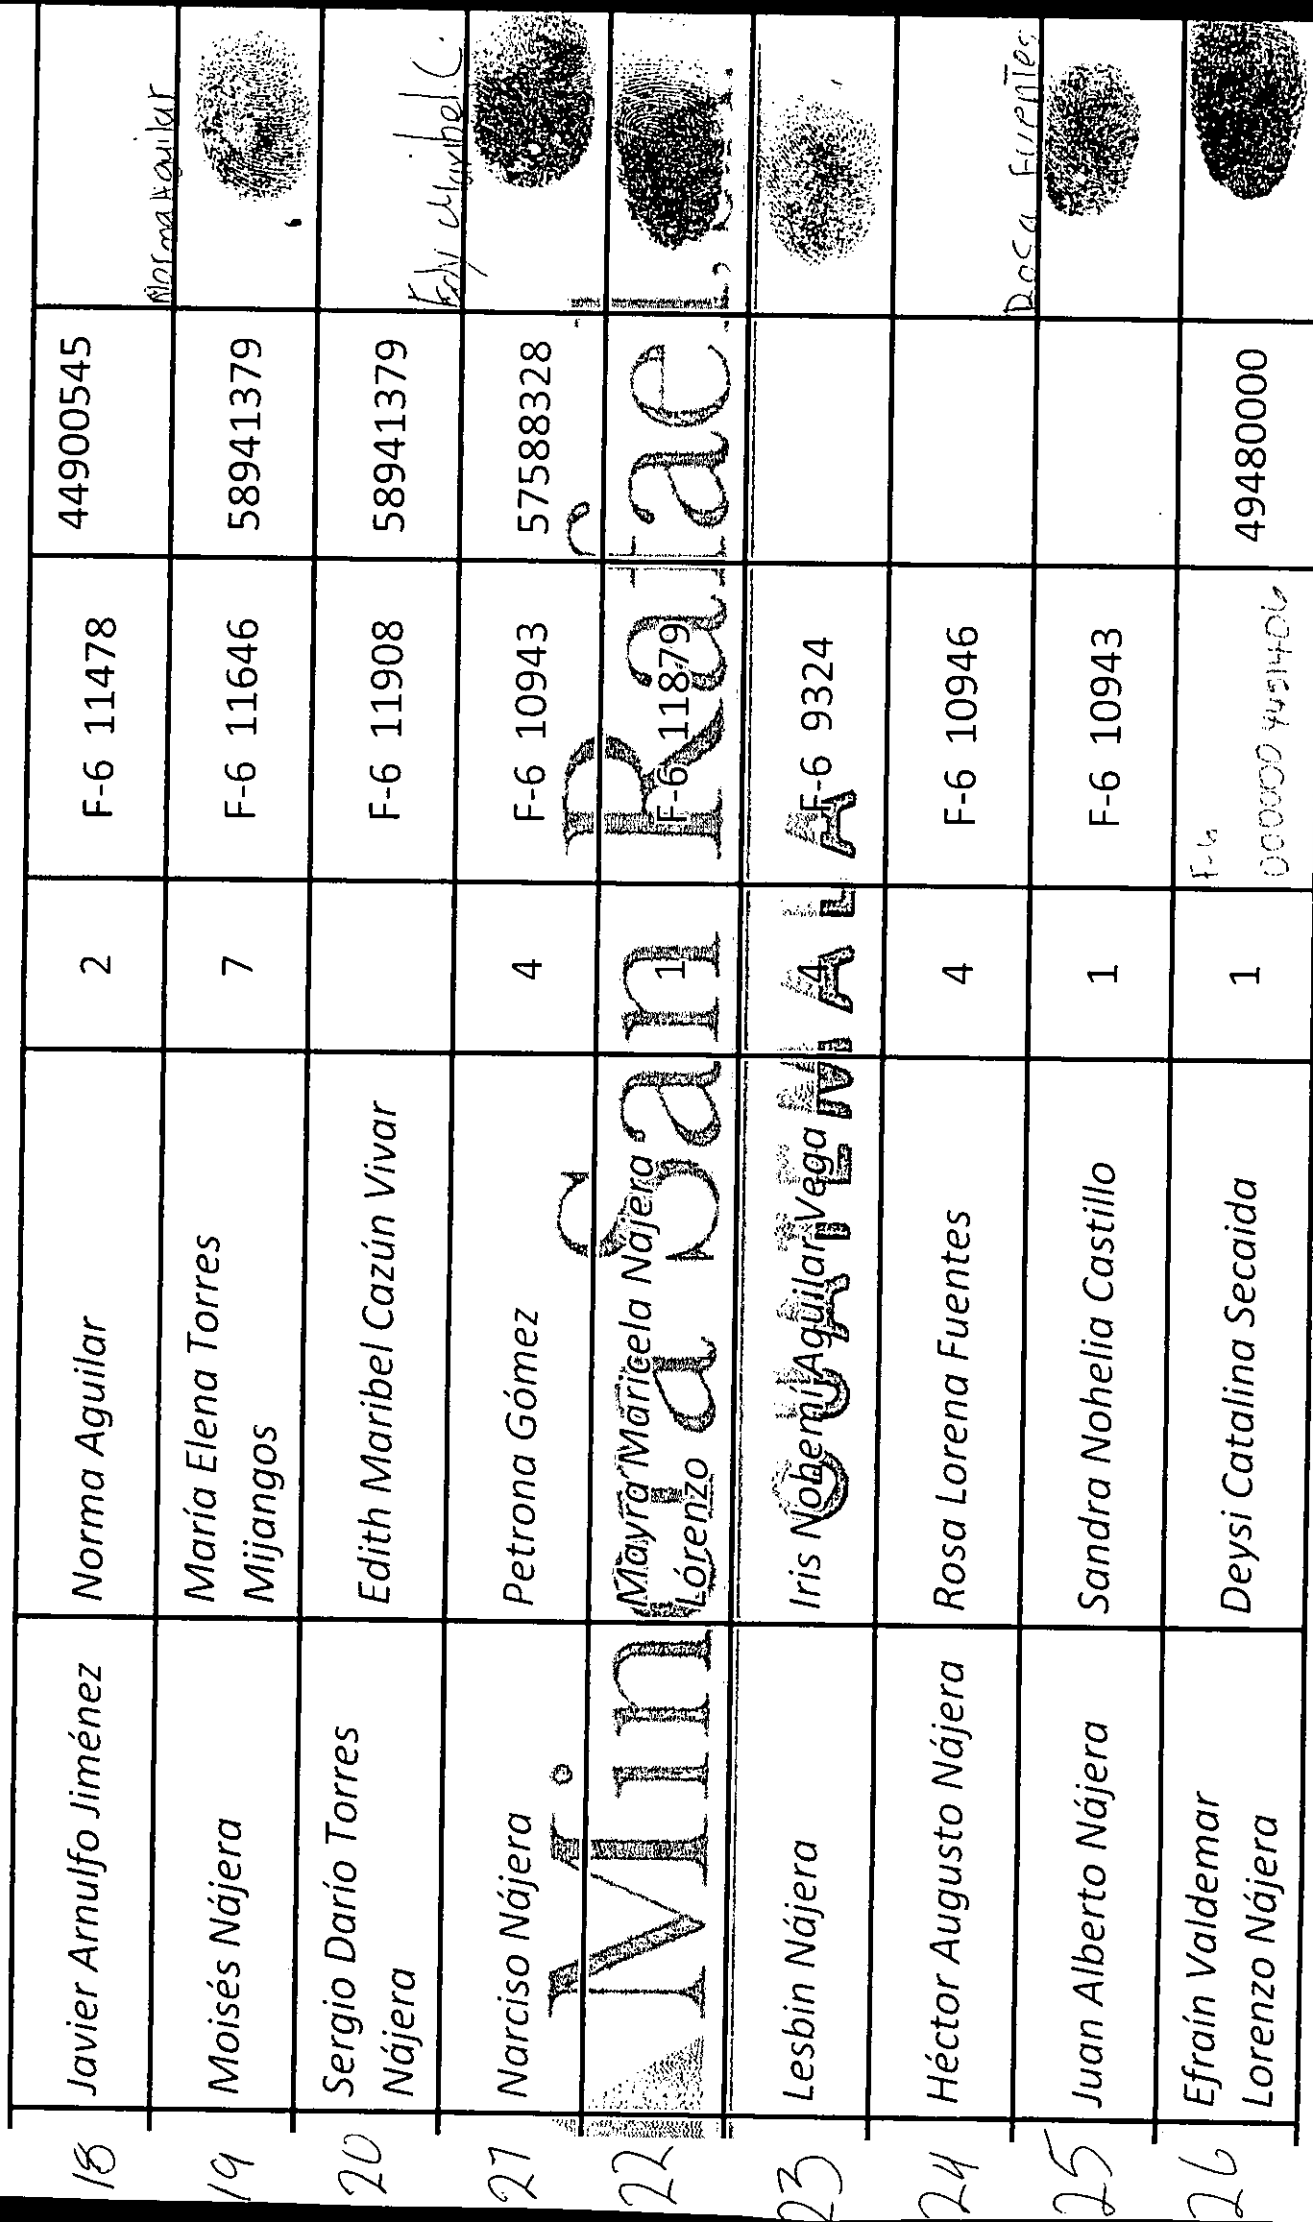 18 Javier Arnulfo Jiménez Norma Aguilar 2 F-6 11478 44900545 Norma Aguilar
19 Moisés Nájera María Elena Torres Mijangos 7 F-6 11646 58941379
20 Sergio Darío Torres Nájera Edith Maribel Cazún Vivar F-6 11908 58941379 Edy Maribel C.
21 Narciso Nájera Petrona Gómez 4 F-6 10943 57588328
22 Mayra Maricela Nájera Lorenzo 1 F-6 11879
Minera San Rafael, S.A.
23 Lesbin Nájera Iris Nohemí Aguilar Vega 4 F-6 9324
GUATEMALA
24 Héctor Augusto Nájera Rosa Lorena Fuentes 4 F-6 10946 Rosa Fuentes
25 Juan Alberto Nájera Sandra Nohelia Castillo 1 F-6 10943
26 Efraín Valdemar Lorenzo Nájera Deysi Catalina Secaida 1 F-6 49480000